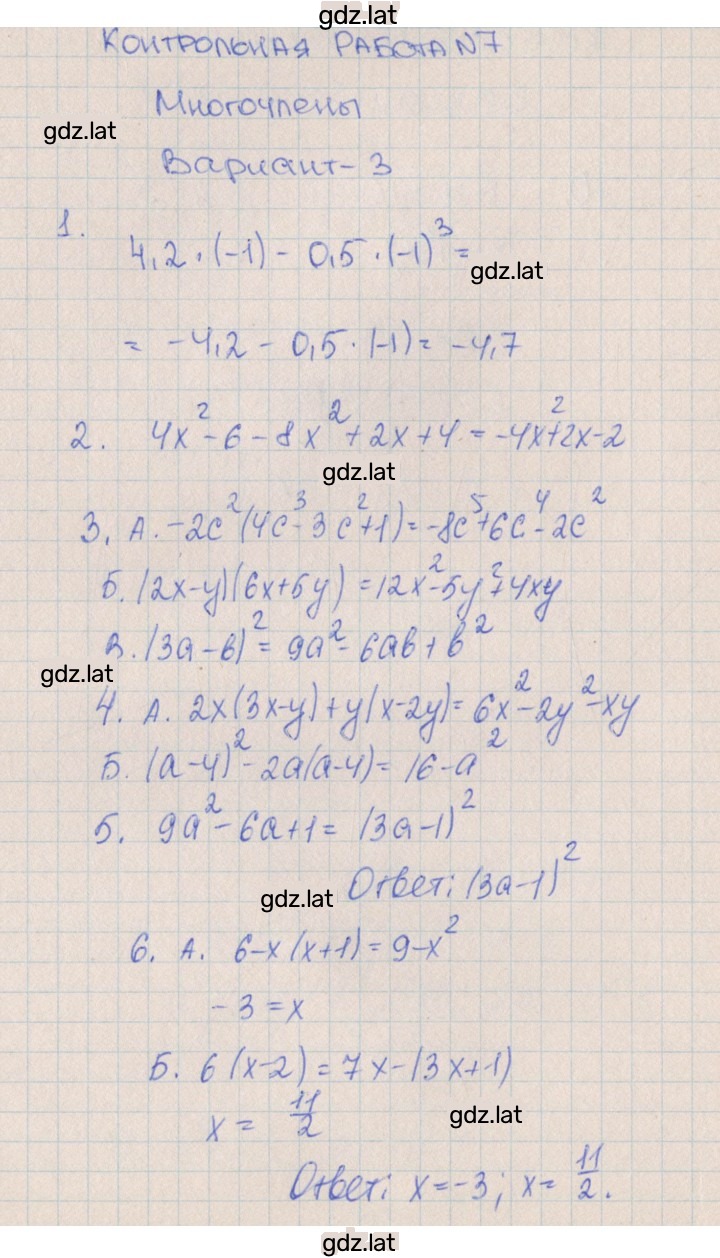 gdz.lat
КОНТРОЛЬНАЯ РАБОТА N7
Многочлены
gdz.lat
Вариант-3
1.
4,2·(-1)-0,5·(-1)³=
gdz.lat
= -4,2-0,5·(-1)= -4,7
2. 4x²-6-8x²+2x+4=-4x²+2x-2
gdz.lat
3. А. -2c²(4c³-3c²+1)=-8c⁵+6c⁴-2c²
Б. (2x-y)(6x+5y)=12x²-5y²+4xy
В. (3a-b)²=9a²-6ab+b²
gdz.lat
4. А. 2x(3x-y)+y(x-2y)=6x²-2y²-xy
Б. (a-4)²-2a(a-4)=16-a²
5. 9a²-6a+1=(3a-1)²
Ответ: (3a-1)²
gdz.lat
6. А. 6-x(x+1)=9-x²
-3=x
Б. 6(x-2)=7x-(3x+1)
x= 11/2
gdz.lat
Ответ: x=-3; x= 11/2.
gdz.lat